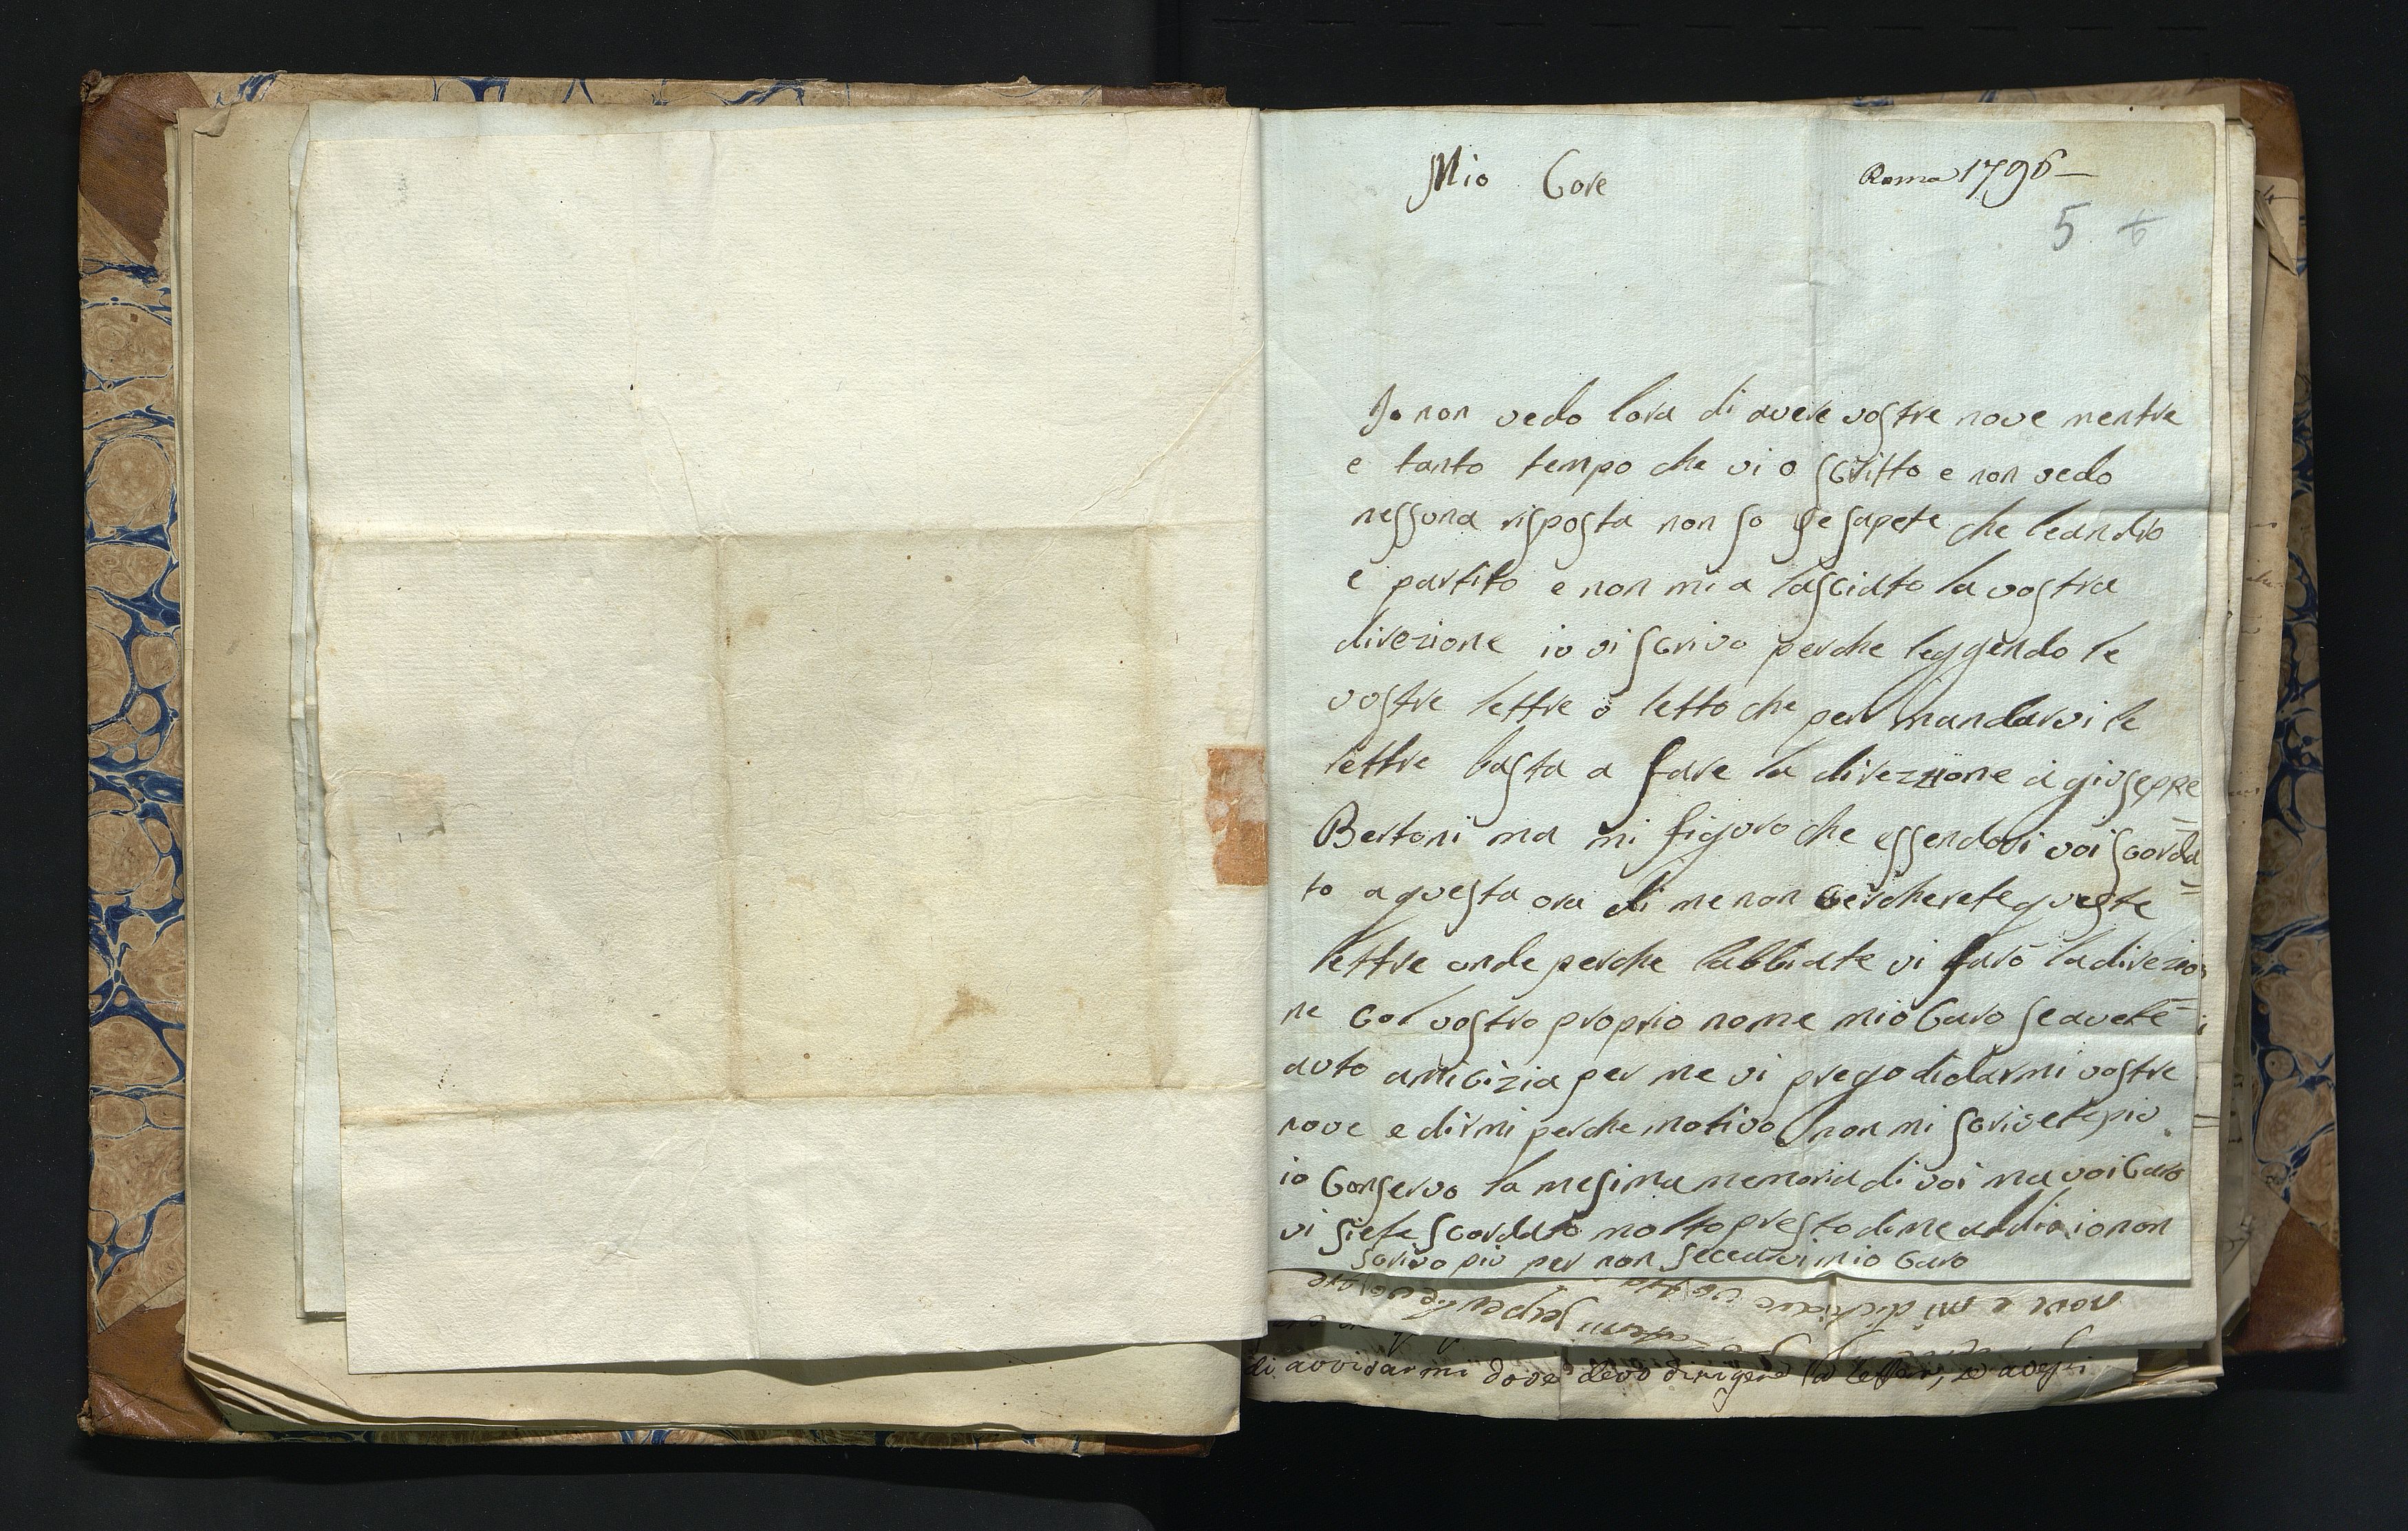 Mio Core
Roma 1796 —
5 +
Io non vedo lora di avere vostre nove mentre
e tanto tempo che vi o scritto e non vedo
nessuna risposta non so se sapete che leandro
e partito e non mi a lasciato la vostra
direzione io vi scrivo perche leggendo le
vostre lettre ò letto che per mandarvi le
lettre basta a fare la direzzione a giuseppe
Bertoni ma mi figuro che essendovi voi scorda=
to a questa ora di me non cercherete queste
lettre onde perche labbiate vi farò la direzio
ne col vostro proprio nome mio Caro se avete
auto amicizia per me vi prego di darmi vostre
nove e dirmi perche motivo non mi scrivete piu
io Conservo la mesima memoria di voi ma voi Caro
vi siete scordato molto presto di me adio io non
scrivo piu per non seccarvi mio Caro
nove e mi
di avvisarmi dove devo dirigere la lettera, se avessi